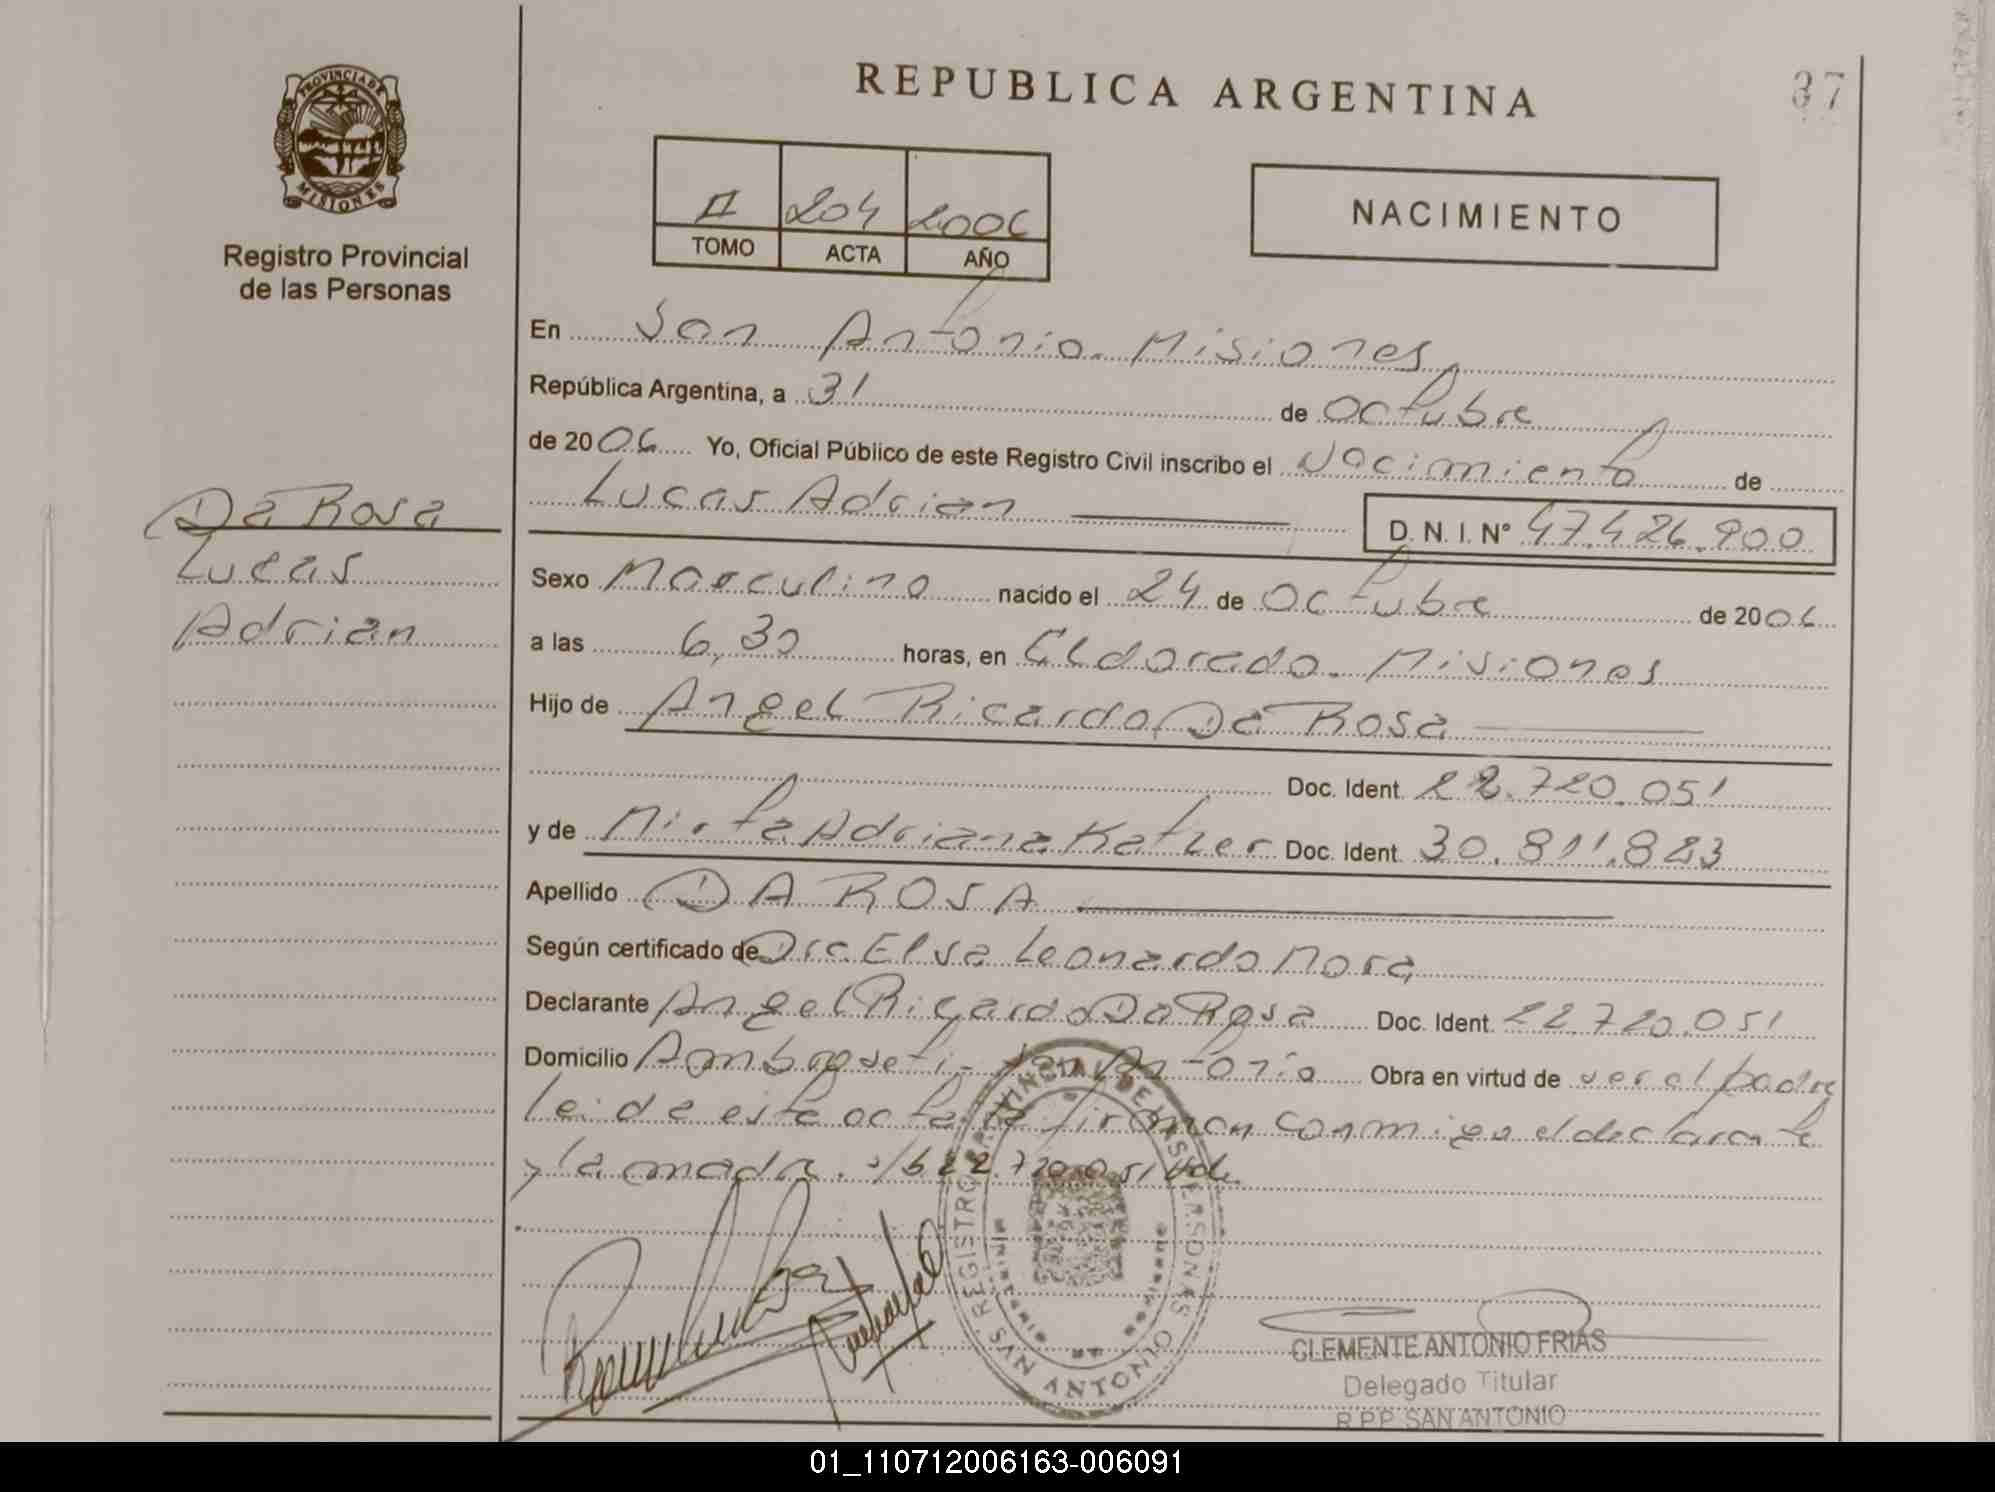 PROVINCIA DE
MISIONES
Registro Provincial
de las Personas
Da Rosa
Lucas
Adrian
REPUBLICA ARGENTINA
37
II 204 2006
TOMO ACTA AÑO
NACIMIENTO
En San Antonio. Misiones
República Argentina, a 31 de Octubre
de 2006 Yo, Oficial Público de este Registro Civil inscribo el Nacimiento de
Lucas Adrian D. N. I. Nº 47.426.900
Sexo Masculino nacido el 24 de Octubre de 2006
a las 6,30 horas, en Eldorado. Misiones
Hijo de Angel Ricardo Da Rosa
Doc. Ident. 22.720.051
y de Mirta Adriana Katzer Doc. Ident. 30.811.823
Apellido DA ROSA
Según certificado de Dra Elsa Leonardo Mora
Declarante Angel Ricardo Da Rosa Doc. Ident. 22.720.051
Domicilio San Antonio Obra en virtud de ser el padre
leida este acta la firman conmigo el declarante
y la madre. 22.720.051 Vale
REGISTRO PROVINCIAL DE LAS PERSONAS
SAN ANTONIO
CLEMENTE ANTONIO FRIAS
Delegado Titular
R.P.P. SAN ANTONIO
01_110712006163-006091